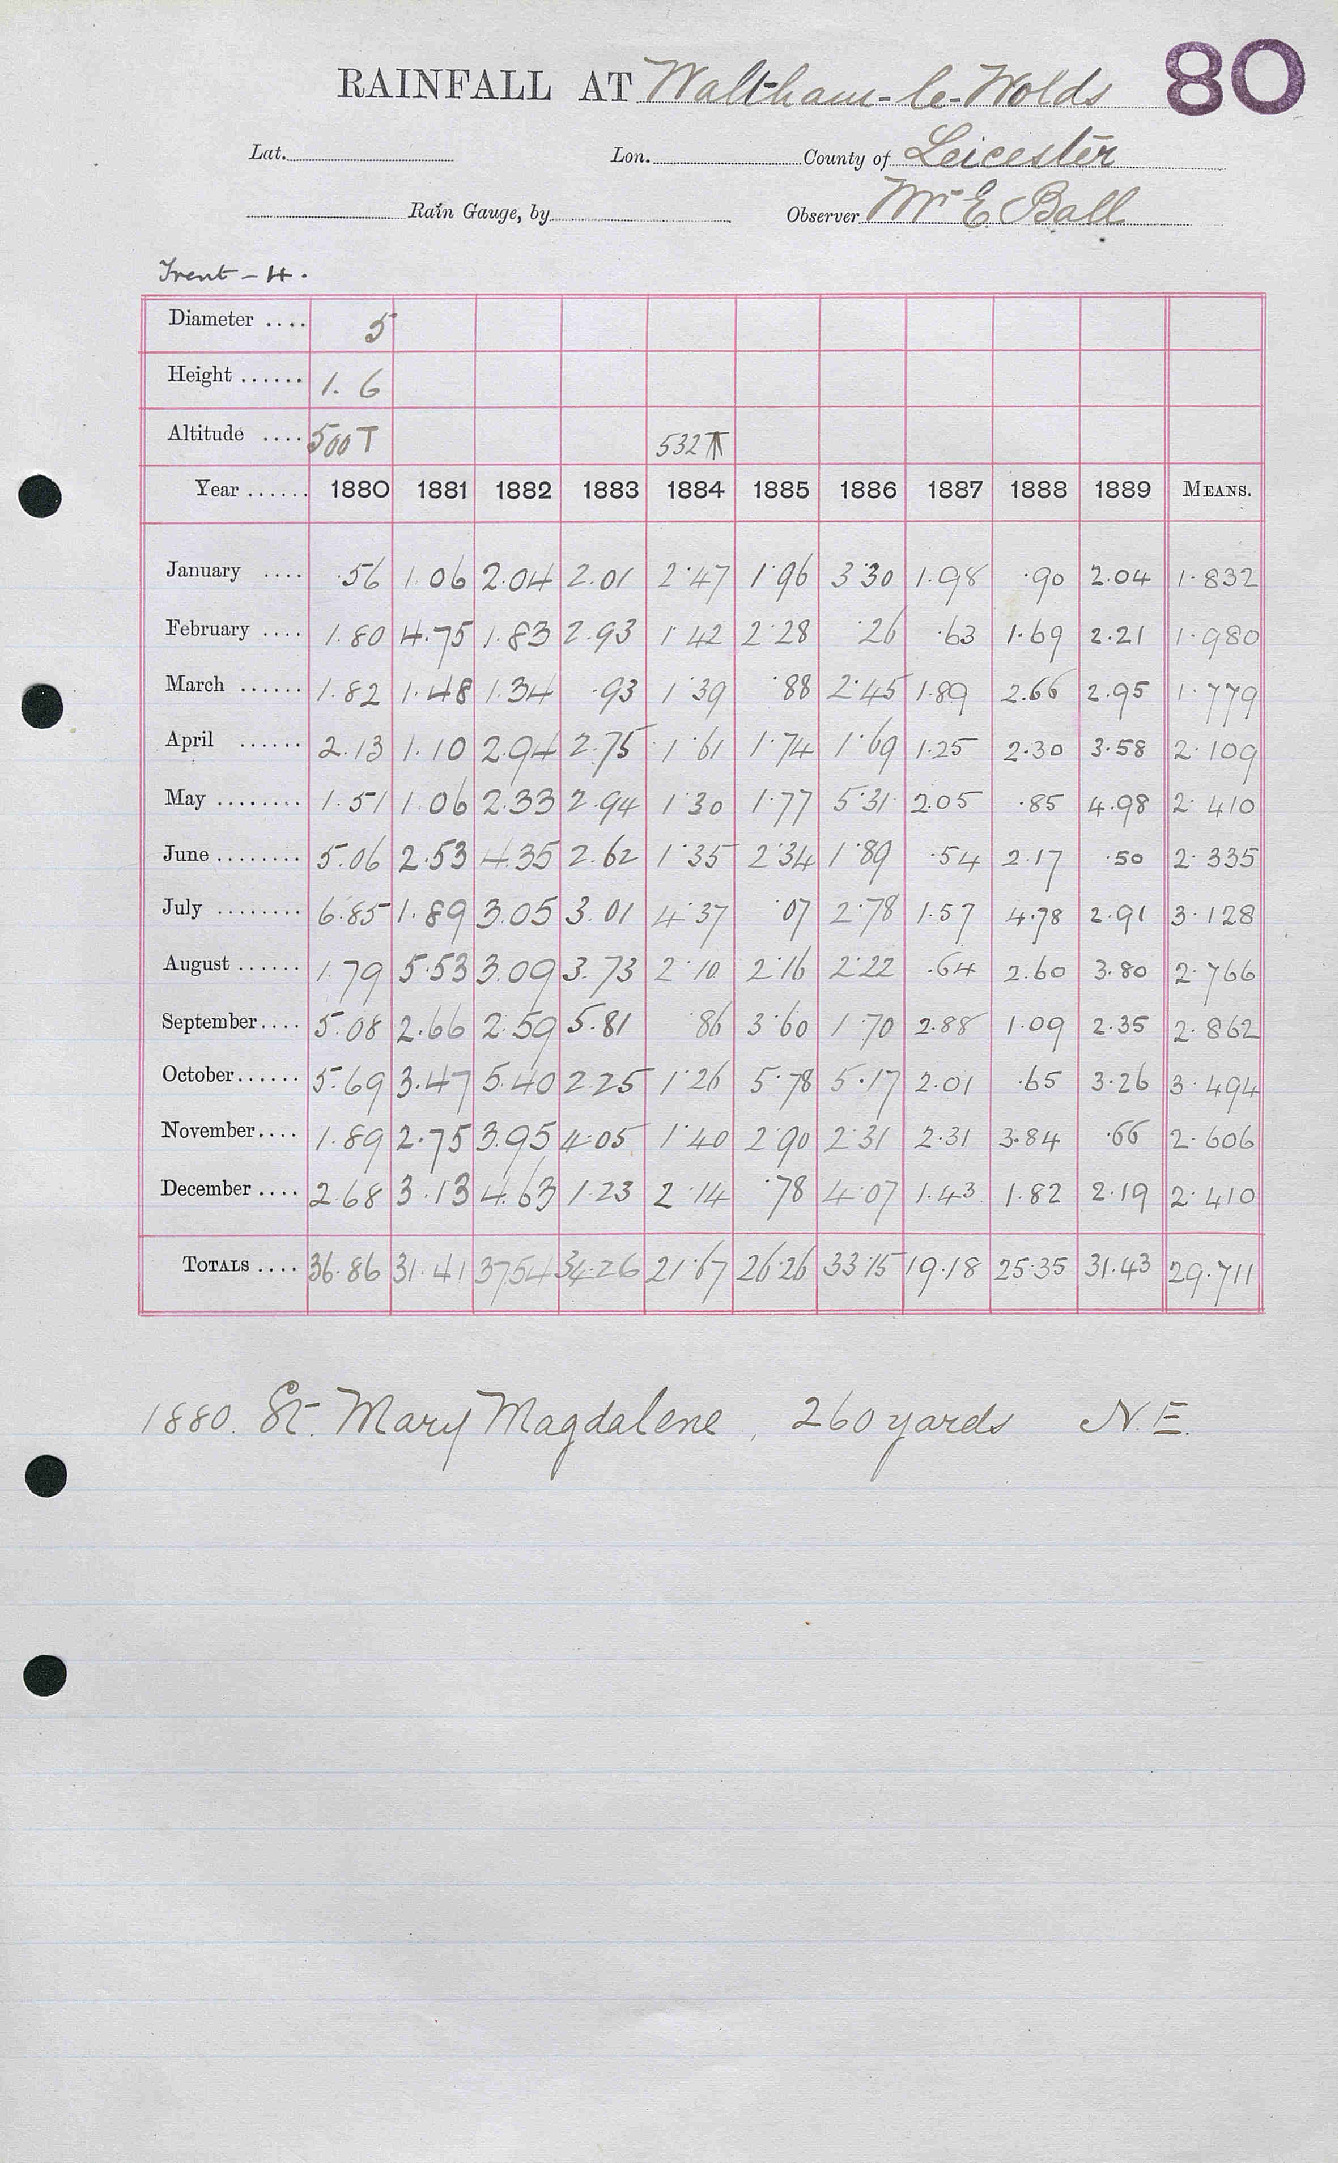 80
RAINFALL AT Waltham-le-Wolds
Lat. Lon. County of Leicester
Rain Gauge, by Observer Mr E Ball
Trent - 4.
Diameter .... 5
Height ...... 1. 6
Altitude .... 500 T 532 T
Year ...... 1880 1881 1882 1883 1884 1885 1886 1887 1888 1889 MEANS.
January .... .56 1.06 2.04 2.01 2.47 1.96 3.30 1.98 .90 2.04 1.832
February .... 1.80 4.75 1.83 2.93 1.42 2.28 .26 .63 1.69 2.21 1.980
March ...... 1.82 1.48 1.34 .93 1.39 .88 2.45 1.89 2.66 2.95 1.779
April ...... 2.13 1.10 2.94 2.75 1.61 1.74 1.69 1.25 2.30 3.58 2.109
May ........ 1.51 1.06 2.33 2.94 1.30 1.77 5.31 2.05 .85 4.98 2.410
June ........ 5.06 2.53 4.35 2.62 1.35 2.34 1.89 .54 2.17 .50 2.335
July ........ 6.85 1.89 3.05 3.01 4.37 .07 2.78 1.57 4.78 2.91 3.128
August ...... 1.79 5.53 3.09 3.73 2.10 2.16 2.22 .64 2.60 3.80 2.766
September.... 5.08 2.66 2.59 5.81 86 3.60 1.70 2.88 1.09 2.35 2.862
October...... 5.69 3.47 5.40 2.25 1.26 5.78 5.17 2.01 .65 3.26 3.494
November.... 1.89 2.75 3.95 4.05 1.40 2.90 2.31 2.31 3.84 .66 2.606
December .... 2.68 3.13 4.63 1.23 2.14 .78 4.07 1.43 1.82 2.19 2.410
TOTALS .... 36.86 31.41 37.54 34.26 21.67 26.26 33.15 19.18 25.35 31.43 29.711
1880. St. Mary Magdalene, 260 yards N.E.